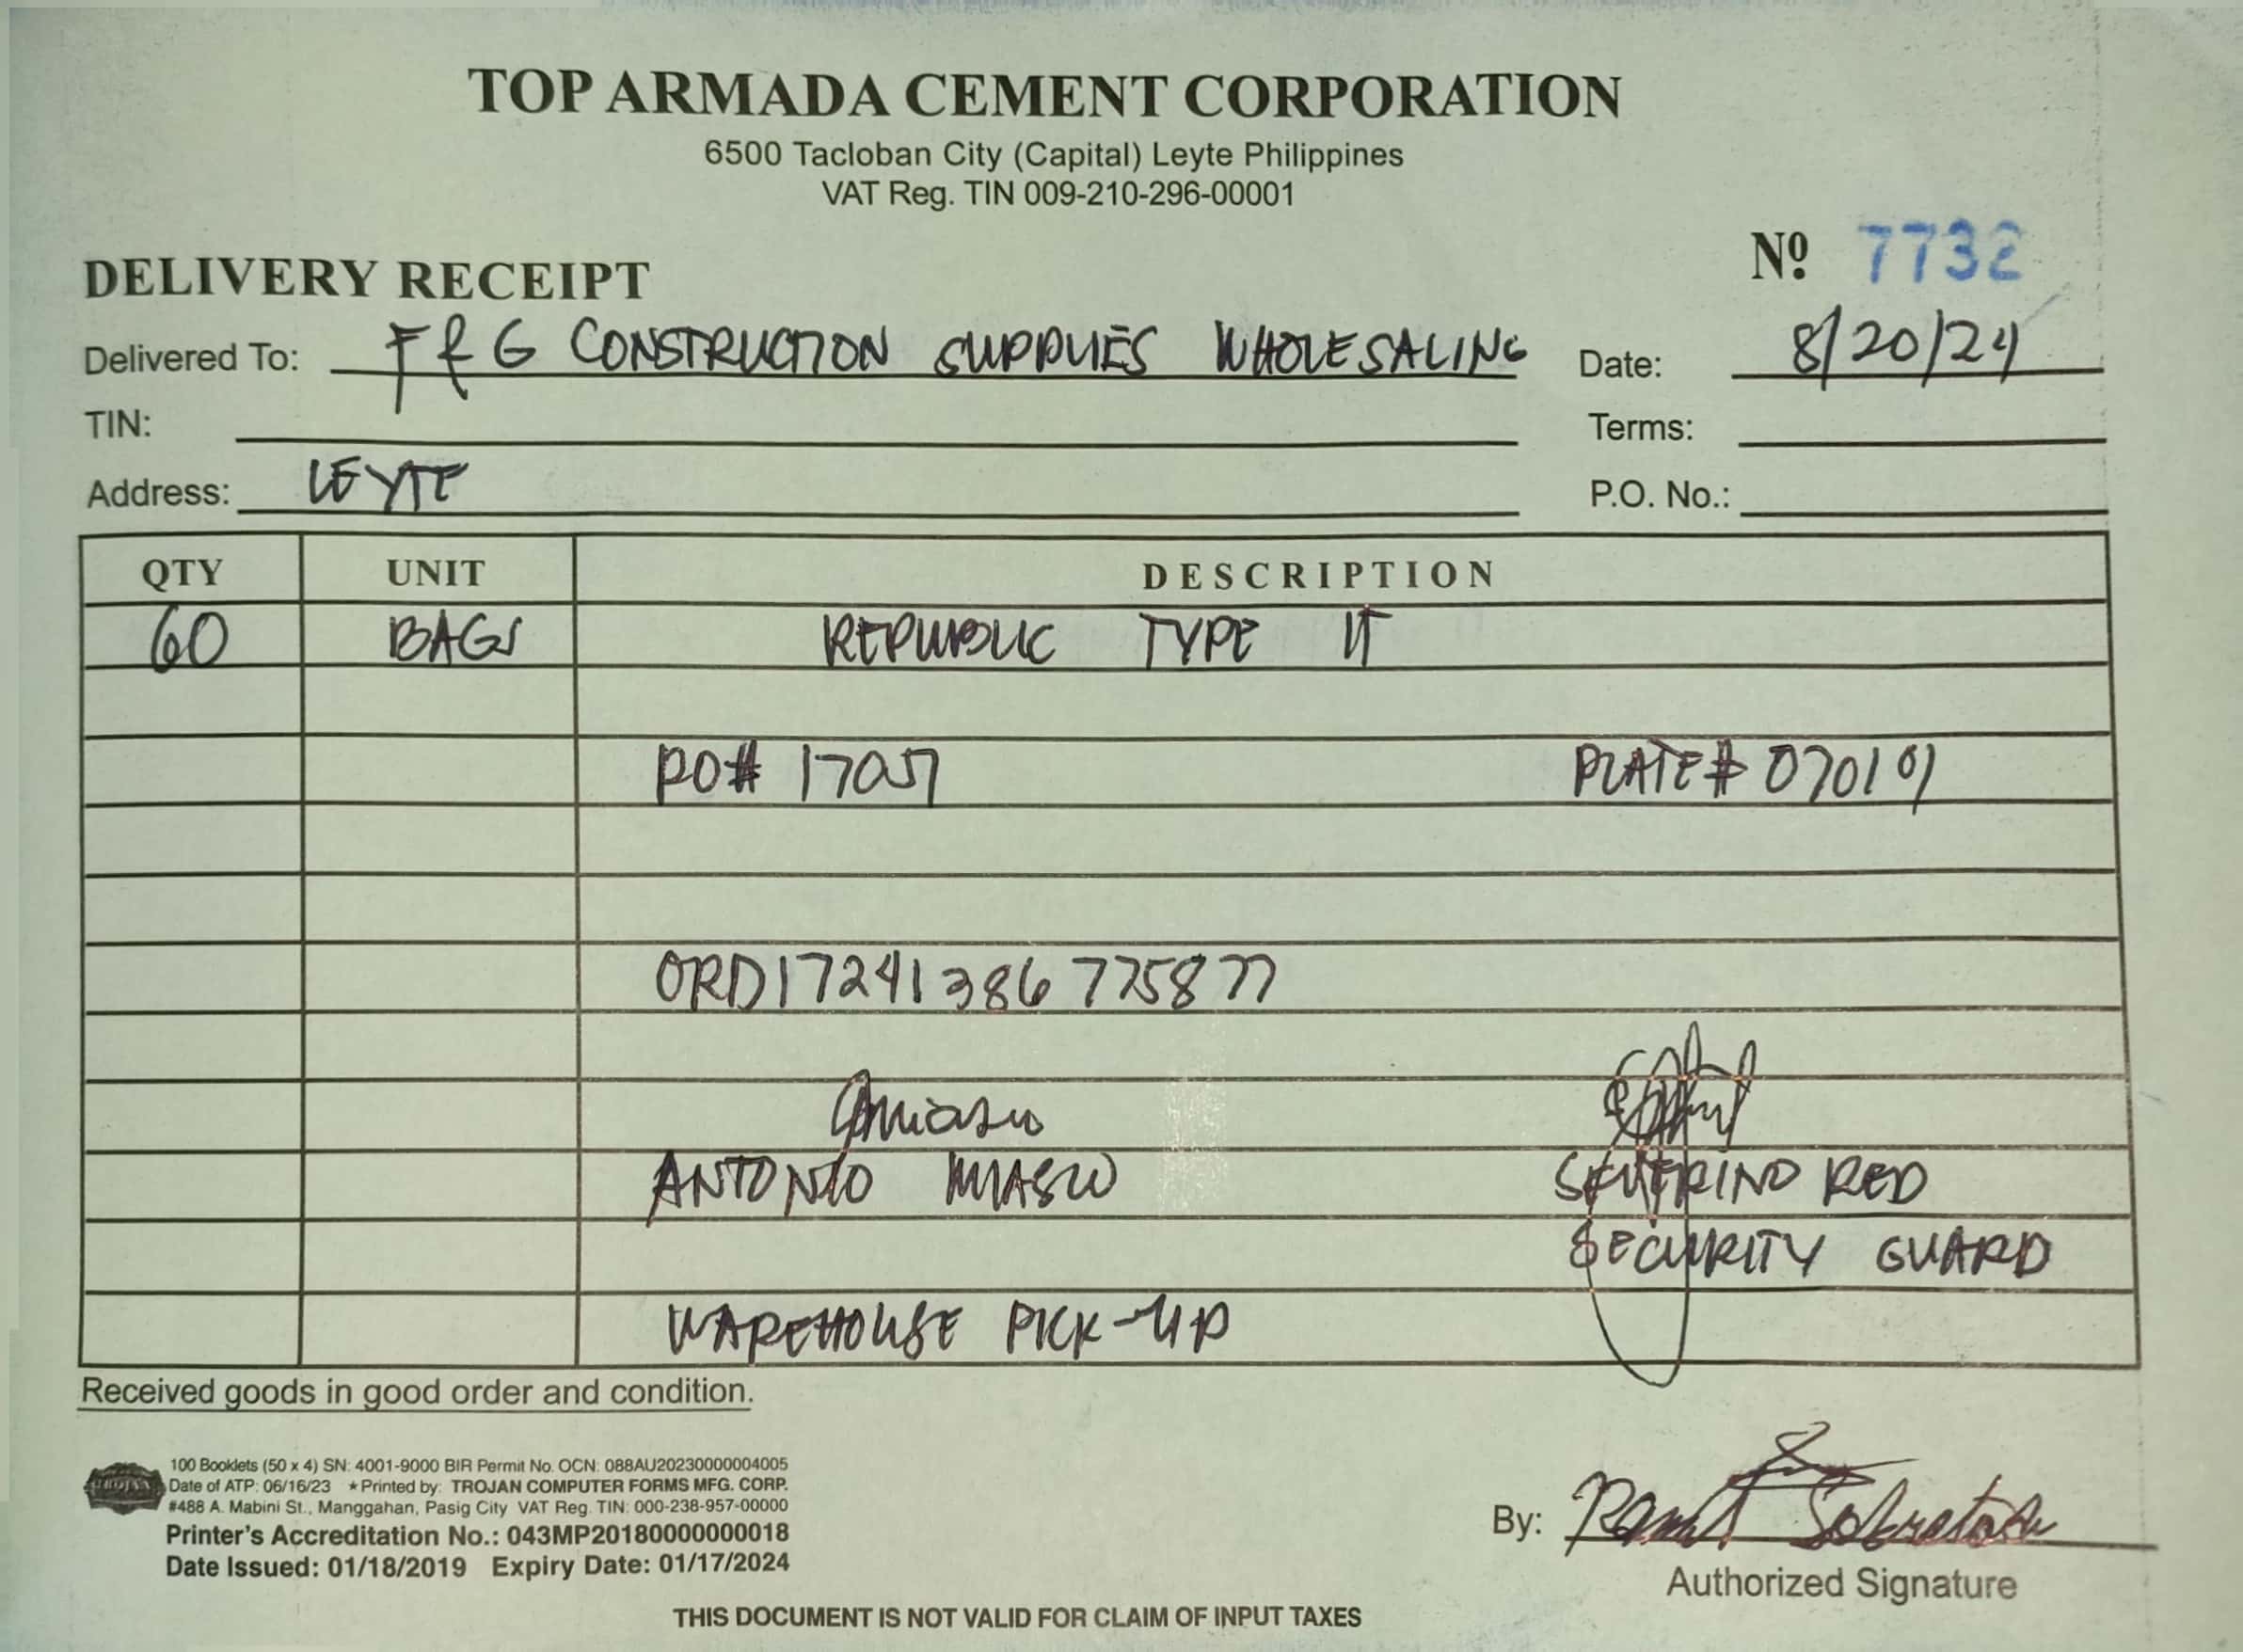 TOP ARMADA CEMENT CORPORATION
6500 Tacloban City (Capital) Leyte Philippines
VAT Reg. TIN 009-210-296-00001
Nº 7732
DELIVERY RECEIPT
Delivered To: F & G CONSTRUCTION SUPPLIES WHOLESALING Date: 8/20/24
TIN: Terms:
Address: LEYTE P.O. No.:
QTY UNIT DESCRIPTION
60 BAGS REPUBLIC TYPE IT
PO# 17057 PLATE# 070101
ORD17241386775877
ANTONIO SEVERINO RED
SECURITY GUARD
WAREHOUSE PICK-UP
Received goods in good order and condition.
100 Booklets (50 x 4) SN: 4001-9000 BIR Permit No. OCN: 088AU20230000004005
Date of ATP: 06/16/23 ★Printed by: TROJAN COMPUTER FORMS MFG. CORP.
#488 A. Mabini St., Manggahan, Pasig City VAT Reg. TIN: 000-238-957-00000
Printer's Accreditation No.: 043MP20180000000018
Date Issued: 01/18/2019 Expiry Date: 01/17/2024
TROJAN
By:
Authorized Signature
THIS DOCUMENT IS NOT VALID FOR CLAIM OF INPUT TAXES